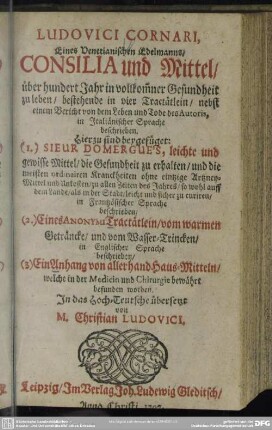 LUDOVICI CORNARI,
Eines Venetianischen Edelmanns/
CONSILIA und Mittel/
über hundert Jahr in vollkom̃ner Gesundheit
zu leben/ bestehende in vier Tractätlein/ nebst
einem Bericht von dem Leben und Tode des Autoris,
in Italiänischer Sprache
beschrieben.
Hierzu sind beygefüget:
(1.) SIEUR DOMERGUE'S, leichte und
gewisse Mittel/ die Gesundheit zu erhalten/ und die
meisten ordinairen Kranckheiten ohne eintzige Artzney
Mittel und Unkosten/ zu allen Zeiten des Jahres/ so wohl auff
dem Lande/ als in der Stadt/ leicht und sicher zu curiren/
in Frantzösischer Sprache
beschrieben/
(2.) Eines ANONYMI Tractätlein/ vom warmen
Geträncke/ und vom Wasser-Trincken/
in Englischer Sprache
beschrieben/
(3) Ein Anhang von allerhand Haus-Mitteln/
welche in der Medicin und Chirurgie bewährt
befunden worden.
In das Hoch-Teutsche übersetzt
von
M. Christian LUDOVICI,
Leipzig/ Im Verlag Joh. Ludewig Gleditsch/
Anno Christi